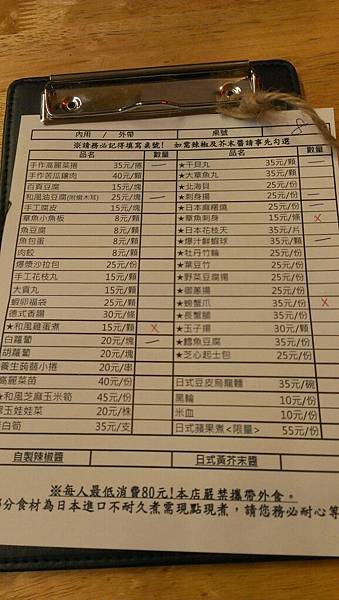 內用 / 外帶 桌號 8
※請務必記得填寫桌號! 如需辣椒及芥末醬請事先勾選
品名 數量 品名 數量
手作高麗菜捲 35元/捲 一 ★干貝丸 35元/顆 一
手作苦瓜鑲肉 40元/顆 ★大章魚丸 35元/顆
百頁豆腐 15元/塊 ★北海貝 25元/份
和風油豆腐(附櫻木耳) 25元/塊 一 ★刺身揚 25元/份 一
手工腐皮 15元/塊 ★日本麻糬燒 25元/份 一
章魚小魚板 8元/顆 ★章魚刺身 15元/條 X
魚豆腐 8元/顆 ★日本花枝天 35元/片
魚包蛋 8元/顆 ★爆汁鮮蝦球 35元/顆 一
肉餃 8元/顆 ★牡丹竹輪 25元/份
爆漿沙拉包 25元/份 ★葉豆竹 25元/份
手工花枝丸 15元/顆 ★野菜豆腐揚 25元/份
大貢丸 15元/顆 ★御蔥揚 25元/份
蝦卵福袋 25元/顆 ★螃蟹爪 35元/份 X
德式香腸 30元/條 ★長蟹腿 35元/份
★和風雞蛋煮 15元/顆 X ★玉子揚 30元/顆
白蘿蔔 20元/塊 一 ★鱈魚豆腐 35元/份
胡蘿蔔 20元/塊 ★芝心起士包 25元/份
養生蒟蒻小捲 20元/串
高麗菜苗 40元/份 日式豆皮烏龍麵 35元/碗
★和風芝麻玉米筍 45元/份 黑輪 10元/份
翠玉娃娃菜 20元/株 米血 10元/份
茭白筍 35元/支 日式蘋果煮<限量> 55元/份
自製辣椒醬 日式黃芥末醬
※每人最低消費80元!本店嚴禁攜帶外食。
部分食材為日本進口不耐久煮需現點現煮,請您務必耐心等